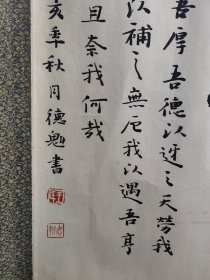 吾厚吾德以迓之天勞我
以補之無厄我以遇吾亨
且奈我何哉
亥年秋月德魁書